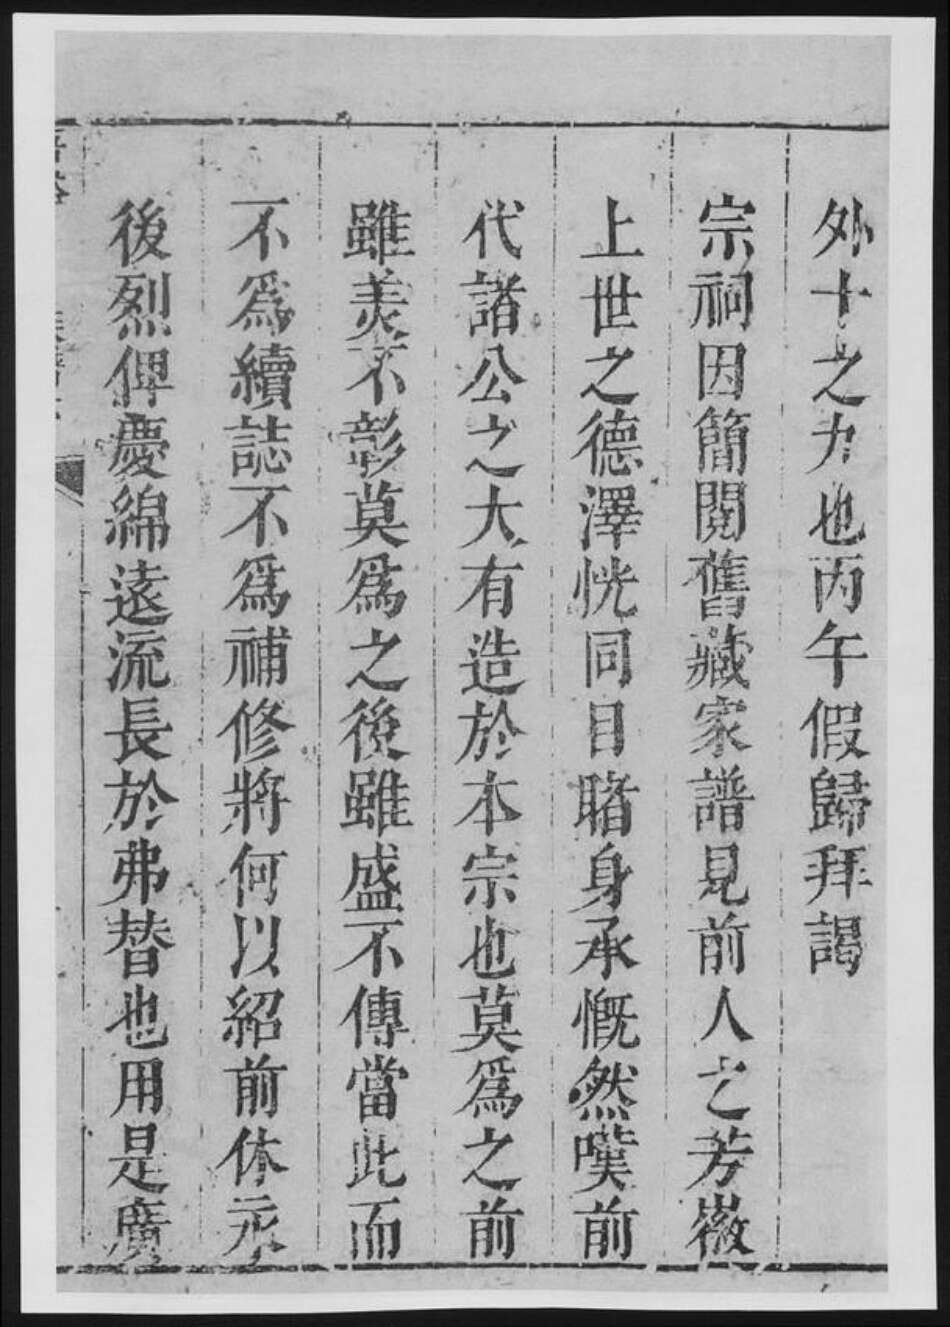 外十之力也丙午假歸拜謁
宗祠因簡閱舊藏家譜見前人之芳徽
上世之德澤恍同目睹身承慨然嘆前
代諸公之大有造於本宗也莫爲之前
雖美不彰莫爲之後雖盛不傳當此而
不爲續誌不爲補修將何以紹前休承
後烈俾慶綿遠流長於弗替也用是廣